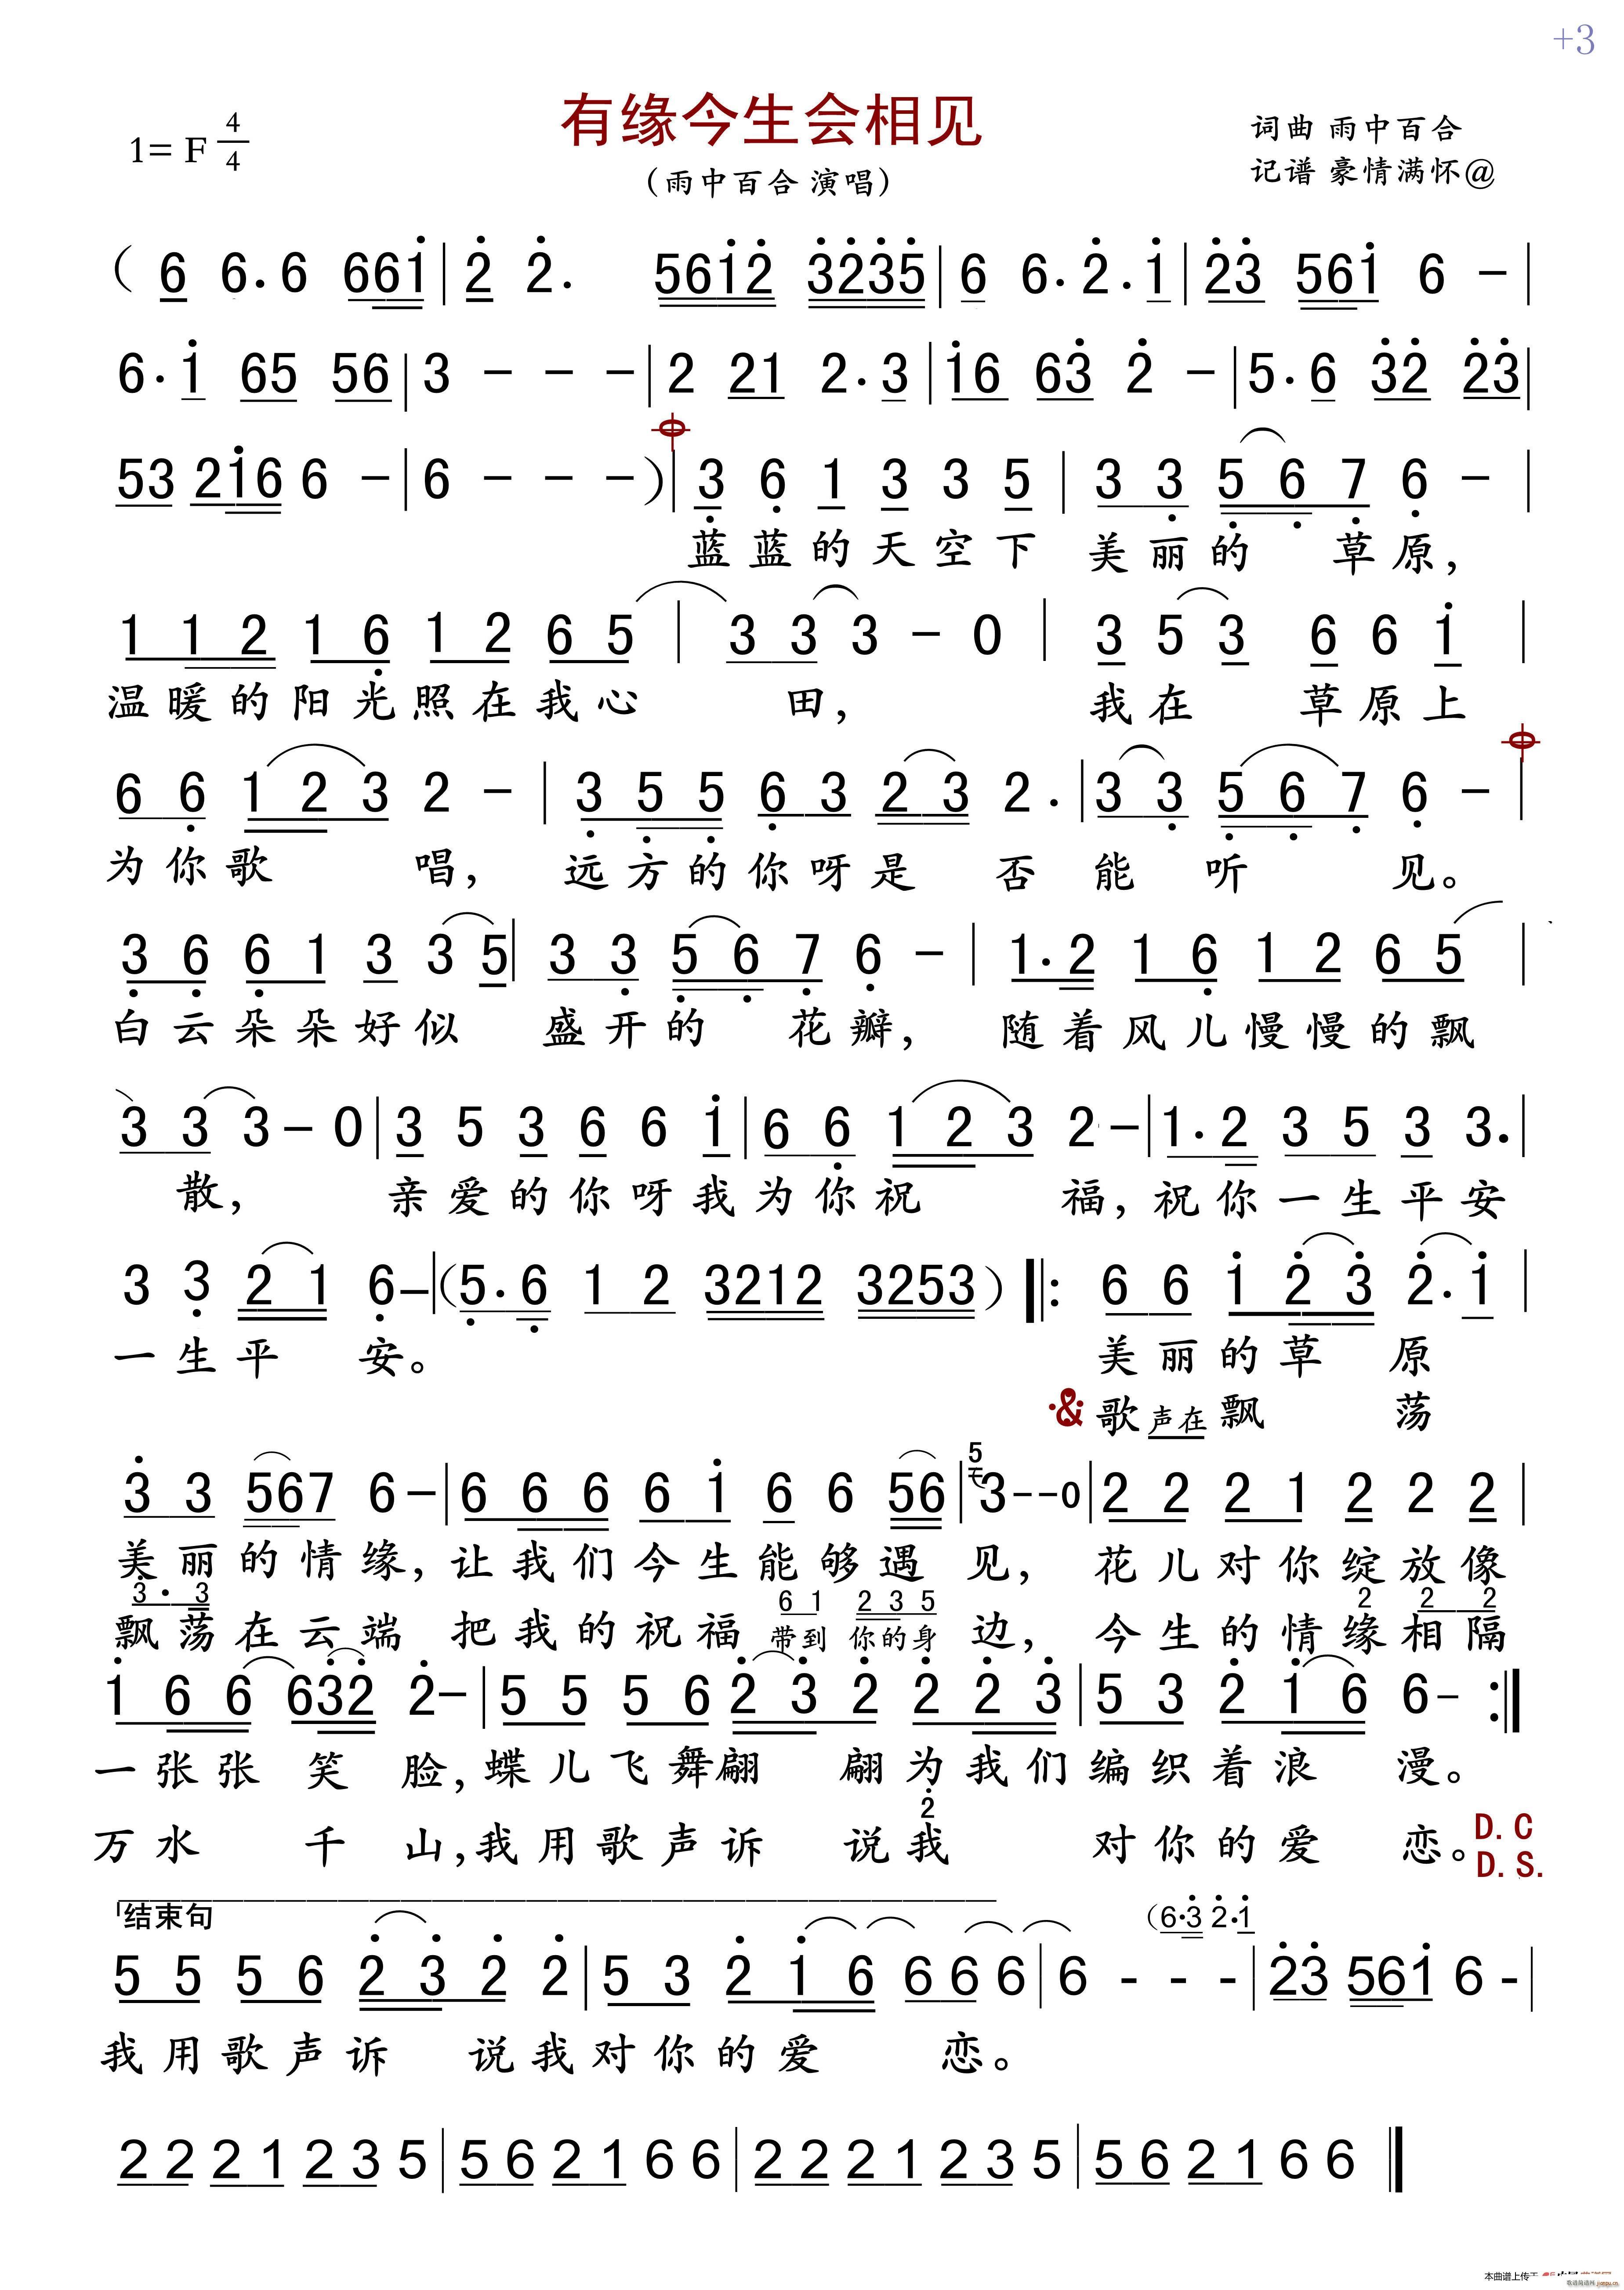 +3
有缘今生会相见
1= F 4/4
词曲 雨中百合
(雨中百合 演唱)
记谱 豪情满怀@
( 6 6. 6 661 | 2 2. 5612 3235 | 6 6. 2. 1 | 23 561 6 - |
6. 1 65 56 | 3 - - - | 2 21 2. 3 | 16 63 2 - | 5. 6 32 23 |
53 216 6 - | 6 - - - ) | 3 6 1 3 3 5 | 3 3 5 6 7 6 - |
蓝蓝的天空下 美丽的 草原,
1 1 2 1 6 1 2 6 5 | 3 3 3 - 0 | 3 5 3 6 6 1 |
温暖的阳光照在我心 田, 我在 草原上
6 6 1 2 3 2 - | 3 5 5 6 3 2 3 2. | 3 3 5 6 7 6 - |
为你歌 唱, 远方的你呀是 否 能 听 见。
3 6 6 1 3 3 5 | 3 3 5 6 7 6 - | 1. 2 1 6 1 2 6 5 |
白云朵朵好似 盛开的 花瓣, 随着风儿慢慢的飘
3 3 3 - 0 | 3 5 3 6 6 1 | 6 6 1 2 3 2 - | 1. 2 3 5 3 3. |
散, 亲爱的你呀我为你祝 福, 祝你一生平安
3 3 2 1 6 - | (5. 6 1 2 3212 3253 ) |: 6 6 1 2 3 2. 1 |
一生平 安。 美丽的草 原
& 歌声在飘 荡
3 3 567 6 - | 6 6 6 6 1 6 6 56 | 5 3 - - 0 | 2 2 2 1 2 2 2 |
美丽的情缘, 让我们今生能够遇 见, 花儿对你绽放像
3 . 3 6 1 2 3 5 2 2 2
飘荡在云端 把我的祝福 带到 你的身 边, 今生的情缘相隔
1 6 6 632 2 - | 5 5 5 6 2 3 2 2 2 3 | 5 3 2 1 6 6 - :|
一张张 笑 脸, 蝶儿飞舞翩 翩为我们编织着浪 漫。
2
万水 千 山, 我用歌声诉 说我 对你的爱 恋。 D.C
D.S.
结束句
(6. 3 2. 1
5 5 5 6 2 3 2 2 | 5 3 2 1 6 6 6 6 | 6 - - - | 23 561 6 - |
我用歌声诉 说我对你的爱 恋。
2 2 2 1 2 3 5 | 5 6 2 1 6 6 | 2 2 2 1 2 3 5 | 5 6 2 1 6 6 ‖
本曲谱上传于